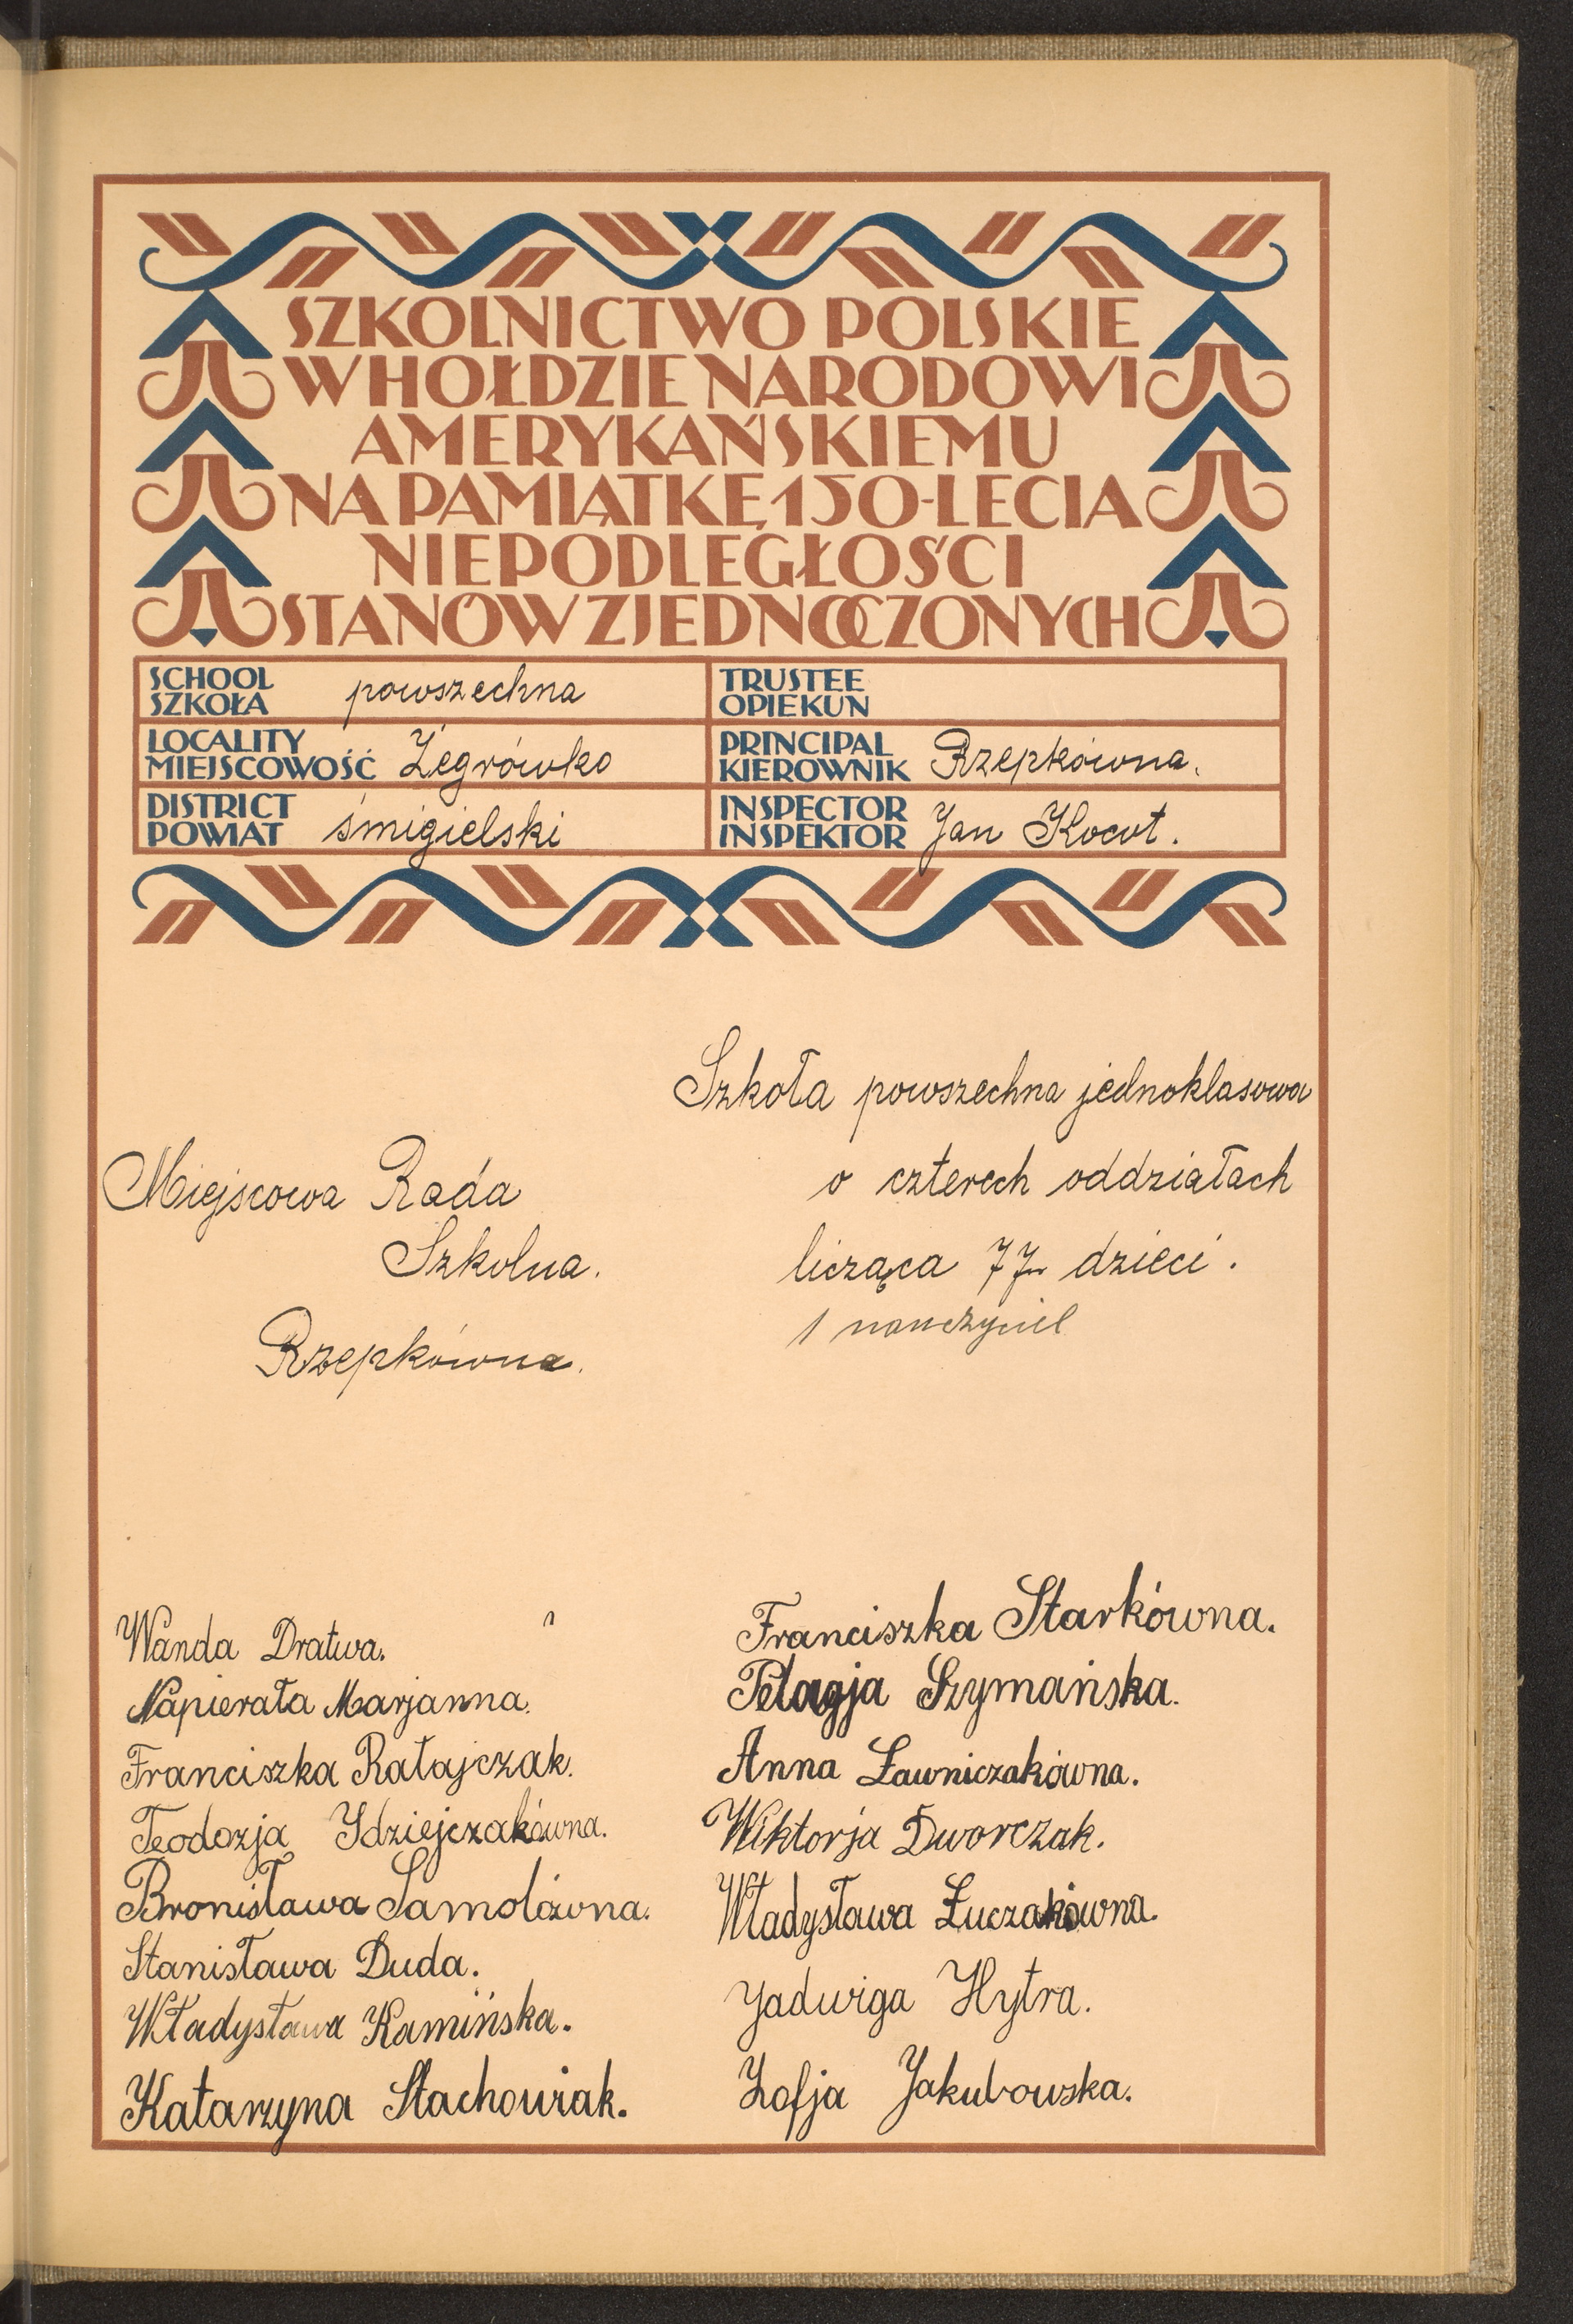 SZKOLNICTWO POLSKIE
W HOŁDZIE NARODOWI
AMERYKAŃSKIEMU
NA PAMIĄTKĘ 150-LECIA
NIEPODLEGŁOŚCI
STANÓW ZJEDNOCZONYCH
SCHOOL
SZKOŁA powszechna
TRUSTEE
OPIEKUN
LOCALITY
MIEJSCOWOŚĆ Żegrówko
PRINCIPAL
KIEROWNIK Rzepkówna.
DISTRICT
POWIAT śmigielski
INSPECTOR
INSPEKTOR Jan Kocut.
Szkoła powszechna jednoklasowa
o czterech oddziałach
licząca 77 dzieci.
1 nauczyciel
Miejscowa Rada
Szkolna.
Rzepkówna.
Wanda Dratwa.
Napierała Marjanna.
Franciszka Ratajczak.
Teodozja Idziejczakówna.
Bronisława Samolówna.
Stanisława Duda.
Władysława Kamińska.
Katarzyna Stachowiak.
Franciszka Starkówna.
Pelagja Szymańska.
Anna Ławniczakówna.
Wiktorja Dworczak.
Władysława Łuczakówna.
Jadwiga Hytra.
Zofja Jakubowska.